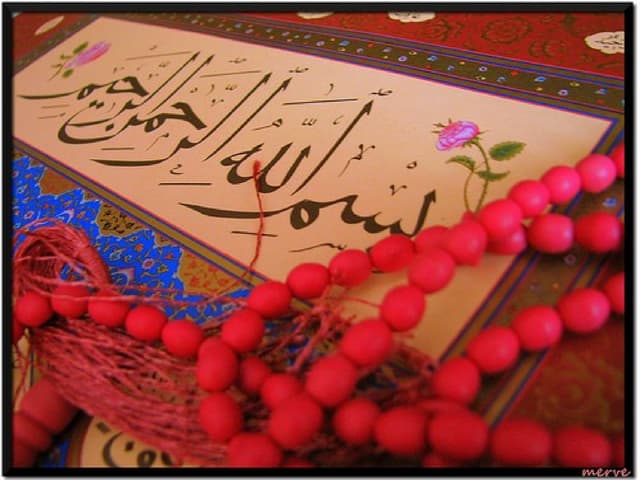 بِسْمِ اللهِ الرَّحْمٰنِ الرَّحِيمِ
merve